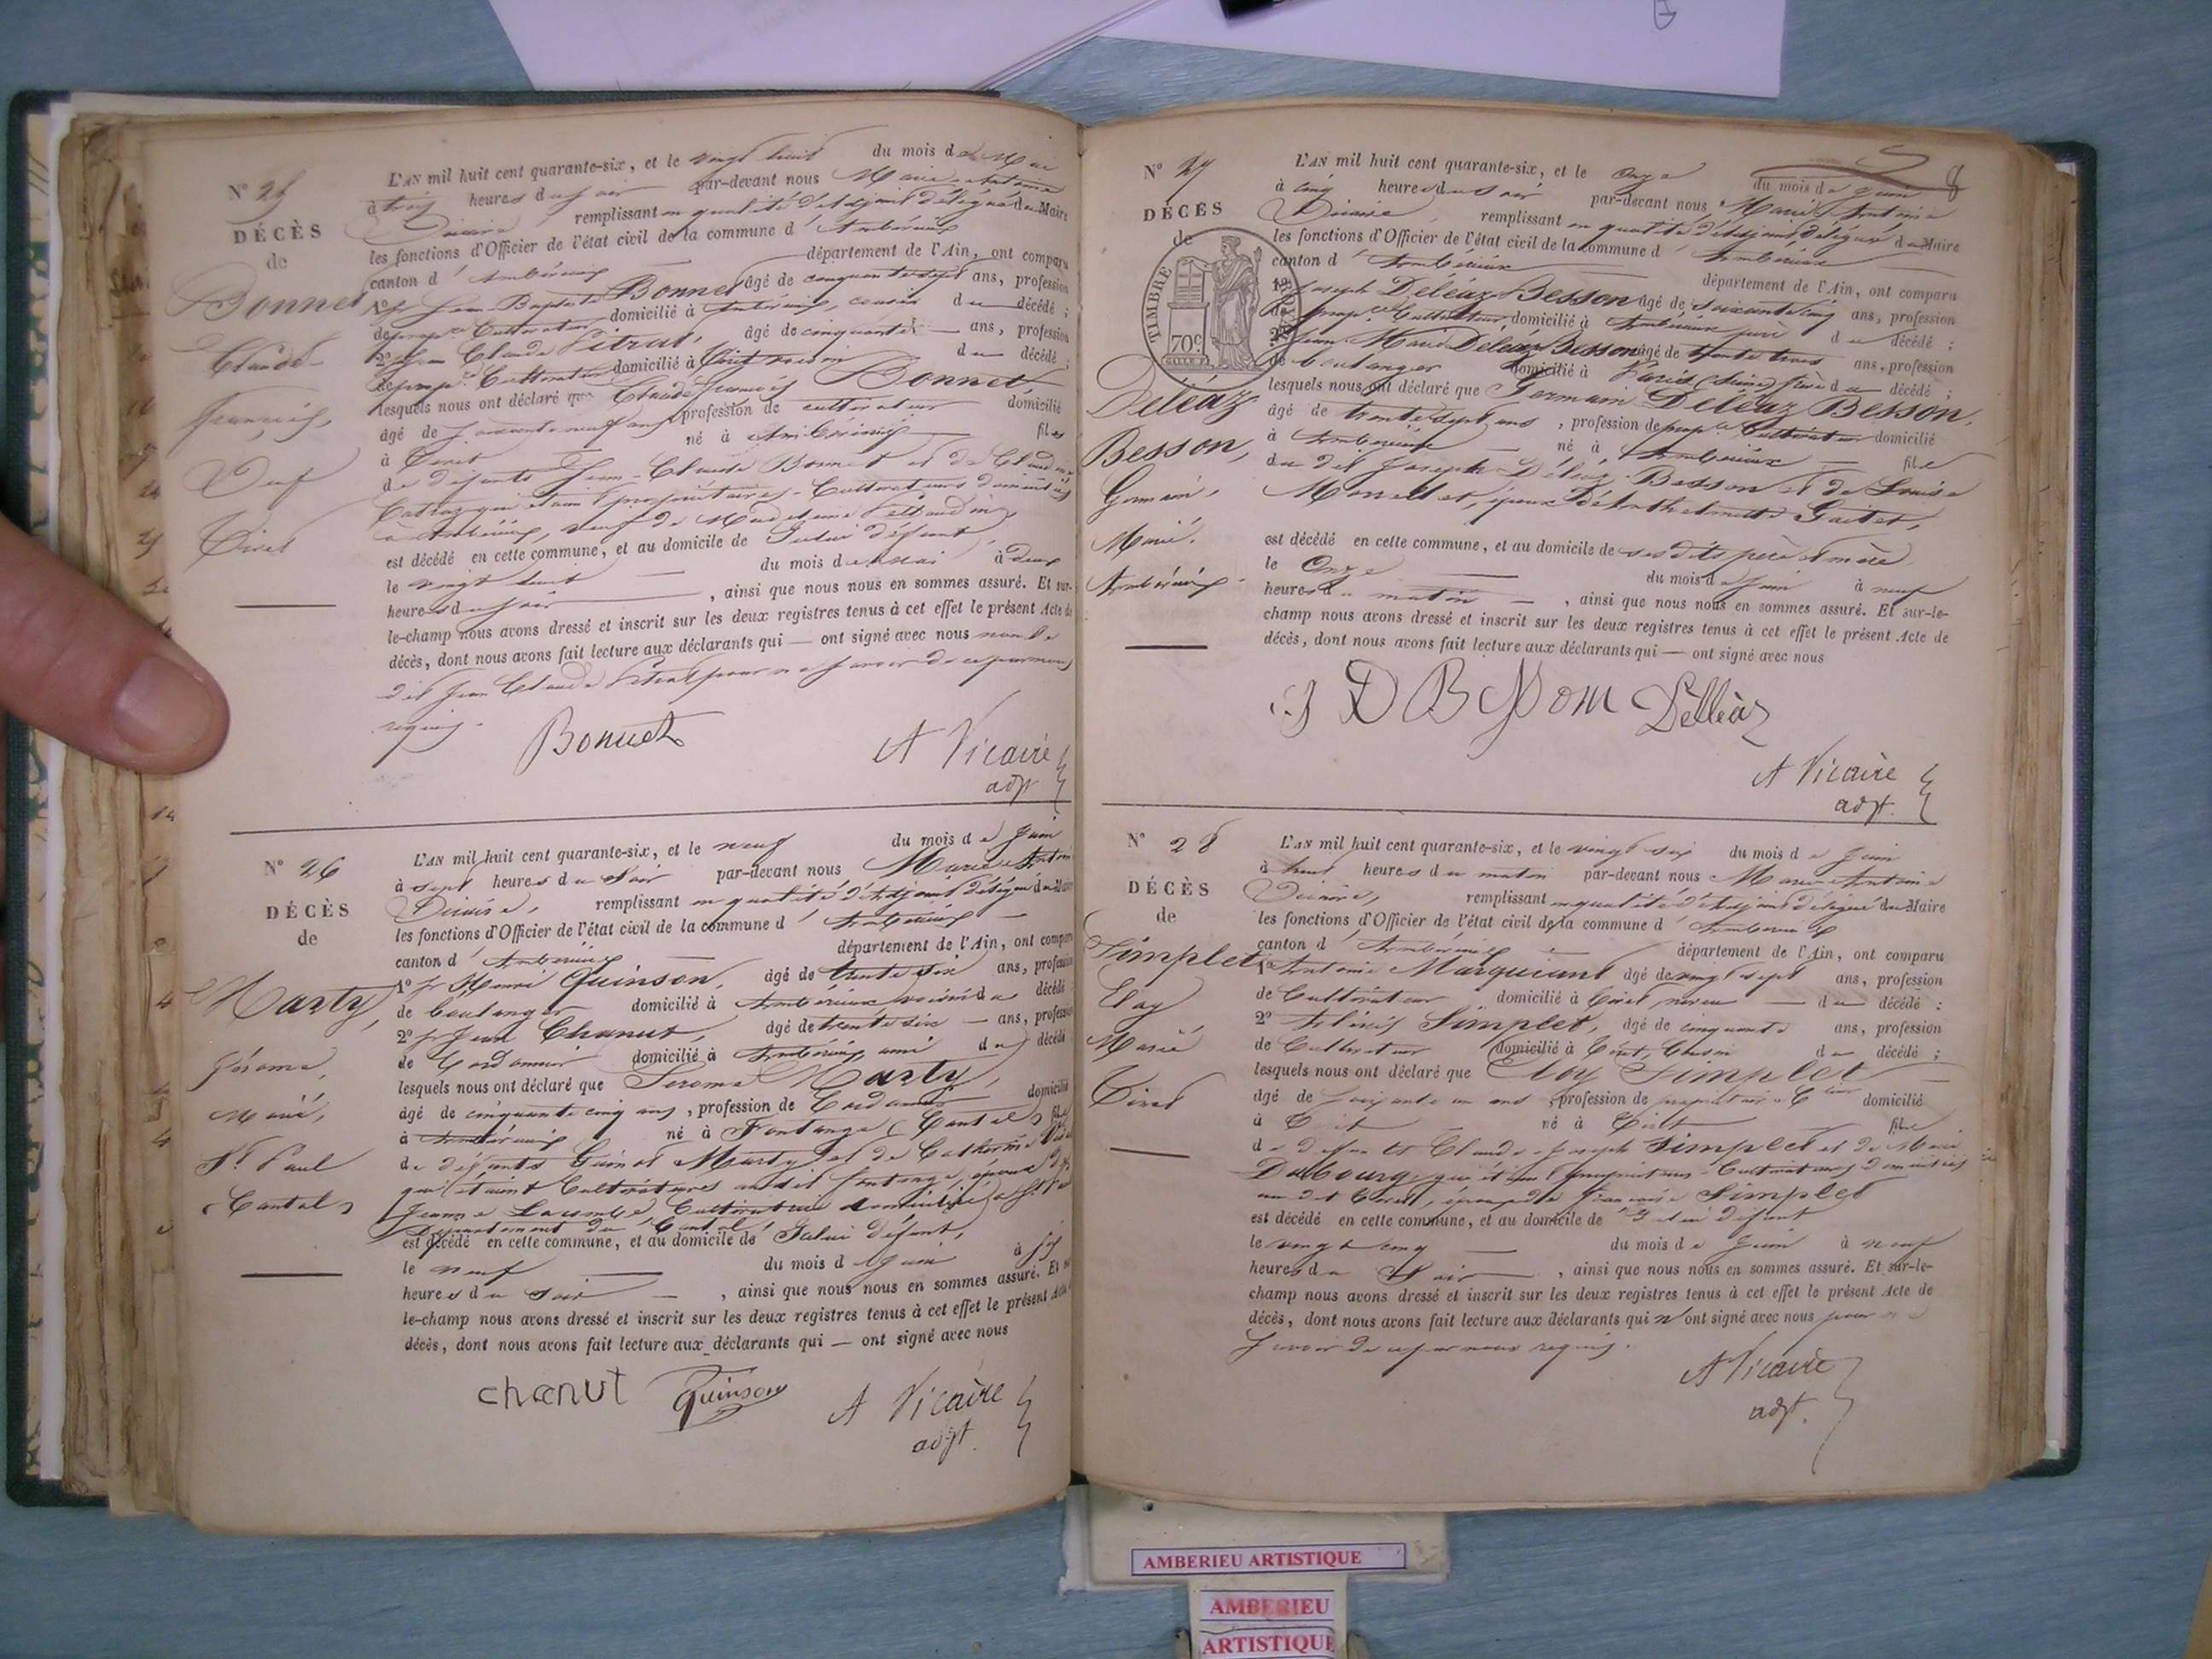 N° 25
DÉCÈS
de
Bonnet
Claude
François,
Veuf
Tiret
L'AN mil huit cent quarante-six, et le vingt huit du mois de Mai
à trois heures du soir par-devant nous Marie Antoine
Vicaire remplissant en qualité d'adjoint délégué du Maire
les fonctions d'Officier de l'état civil de la commune d'Ambérieux
canton d'Ambérieux département de l'Ain, ont comparu
1° Jean-Baptiste Bonnet âgé de cinquante sept ans, profession
de prop.re Cultivateur domicilié à Ambérieux, cousin du décédé ;
2° Jean Claude Pitrat, âgé de cinquante ans, profession
de prop.re Cultivateur domicilié à Tiret voisin du décédé ;
lesquels nous ont déclaré que Claude François Bonnet,
âgé de soixante neuf ans profession de cultivateur domicilié
à Tiret né à Ambérieux fils
de défunts Jean-Claude Bonnet et de Claudine
qui étaient propriétaires-Cultivateurs domiciliés
à Ambérieux, veuf de Madeleine
est décédé en cette commune, et au domicile de Celui défunt,
le vingt huit du mois de Mai à deux
heures du soir , ainsi que nous nous en sommes assuré. Et sur-
le-champ nous avons dressé et inscrit sur les deux registres tenus à cet effet le présent Acte de
décès, dont nous avons fait lecture aux déclarants qui — ont signé avec nous non le
dit Jean Claude Pitrat pour ne savoir de ce par nous
requis.
Bonnet
A Vicaire
adjt
N° 26
DÉCÈS
de
Marty,
Jérome,
Marié,
St Paul
(Cantal)
L'AN mil huit cent quarante-six, et le neuf du mois de Juin
à sept heures du Soir par-devant nous Marie Antoine
Vicaire, remplissant en qualité d'Adjoint délégué du Maire
les fonctions d'Officier de l'état civil de la commune d'Ambérieux
canton d'Ambérieux département de l'Ain, ont comparu
1° Henri Quinson, âgé de trente six ans, profession
de boulanger domicilié à Ambérieux voisin du décédé
2° Jean Chanut, âgé de trente six — ans, profession
de Cordonnier domicilié à Ambérieux ami du décédé
lesquels nous ont déclaré que Jerome Marty,
âgé de cinquante cinq ans, profession de Cordonnier domicilié
à Ambérieux né à Fontange (Cantal) fils
de défunts Guinot Marty et de Catherine
qui étaient Cultivateurs audit Fontange, époux de
Jeanne Lacombe, Cultivatrice domiciliée à St Paul
Département du Cantal
est décédé en cette commune, et au domicile de Celui défunt,
le neuf du mois de Juin à six
heures du Soir — , ainsi que nous nous en sommes assuré. Et sur-
le-champ nous avons dressé et inscrit sur les deux registres tenus à cet effet le présent Acte
décès, dont nous avons fait lecture aux déclarants qui — ont signé avec nous
chanut Quinson A Vicaire
adjt.
8
N° 27
DÉCÈS
de
TIMBRE
70c
Déléaz
Besson,
Germain,
Marié.
Ambérieux
L'AN mil huit cent quarante-six, et le Onze du mois de Juin
à cinq heures du soir par-devant nous Marie Antoine
Vicaire remplissant en qualité d'Adjoint délégué du Maire
les fonctions d'Officier de l'état civil de la commune d'Ambérieux
canton d'Ambérieux département de l'Ain, ont comparu
1° Joseph Deléaz Besson âgé de soixante cinq ans, profession
de prop.re Cultivateur domicilié à Ambérieux père du décédé ;
2° Jean Marie Deléaz Besson âgé de trente trois ans, profession
de boulanger domicilié à Paris (Seine) frère du décédé ;
lesquels nous ont déclaré que Germain Déléaz Besson,
âgé de trente sept ans , profession de prop.re Cultivateur domicilié
à Ambérieux né à Ambérieux — fils
du dit Joseph Déléaz-Besson et de Louise
époux d'Anthelmette Gaitet,
est décédé en cette commune, et au domicile de ses dits père et mère
le Onze du mois de Juin à neuf
heures du matin — , ainsi que nous nous en sommes assuré. Et sur-le-
champ nous avons dressé et inscrit sur les deux registres tenus à cet effet le présent Acte de
décès, dont nous avons fait lecture aux déclarants qui — ont signé avec nous
J D Besson Délléàz
A Vicaire
adjt.
N° 28
DÉCÈS
de
Simplet
Eloy
Marié
Tiret
L'AN mil huit cent quarante-six, et le vingt six du mois de Juin
à huit heures du matin par-devant nous Marie Antoine
Vicaire, remplissant en qualité d'Adjoint délégué du Maire
les fonctions d'Officier de l'état civil de la commune d'Ambérieux
canton d'Ambérieux département de l'Ain, ont comparu
1° Antoine Marguirant âgé de vingt sept ans, profession
de Cultivateur domicilié à Tiret, neveu — du décédé :
2° Alexis Simplet, âgé de cinquante ans, profession
de Cultivateur domicilié à Tiret, Cousin du décédé ;
lesquels nous ont déclaré que Eloy Simplet
âgé de soixante un ans , profession de propriétaire domicilié
à Tiret né à Tiret fils
de défunts Claude-Joseph Simplet et de Marie
Dubourg qui étaient propriétaires-Cultivateurs domiciliés
au dit Tiret, époux de Françoise Simplet
est décédé en cette commune, et au domicile de Celui défunt
le vingt cinq du mois de Juin à neuf
heures du Soir , ainsi que nous nous en sommes assuré. Et sur-le-
champ nous avons dressé et inscrit sur les deux registres tenus à cet effet le présent Acte de
décès, dont nous avons fait lecture aux déclarants qui n'ont signé avec nous pour ne
savoir de ce par nous requis.
A Vicaire
adjt.
AMBERIEU ARTISTIQUE
AMBERIEU
ARTISTIQUE